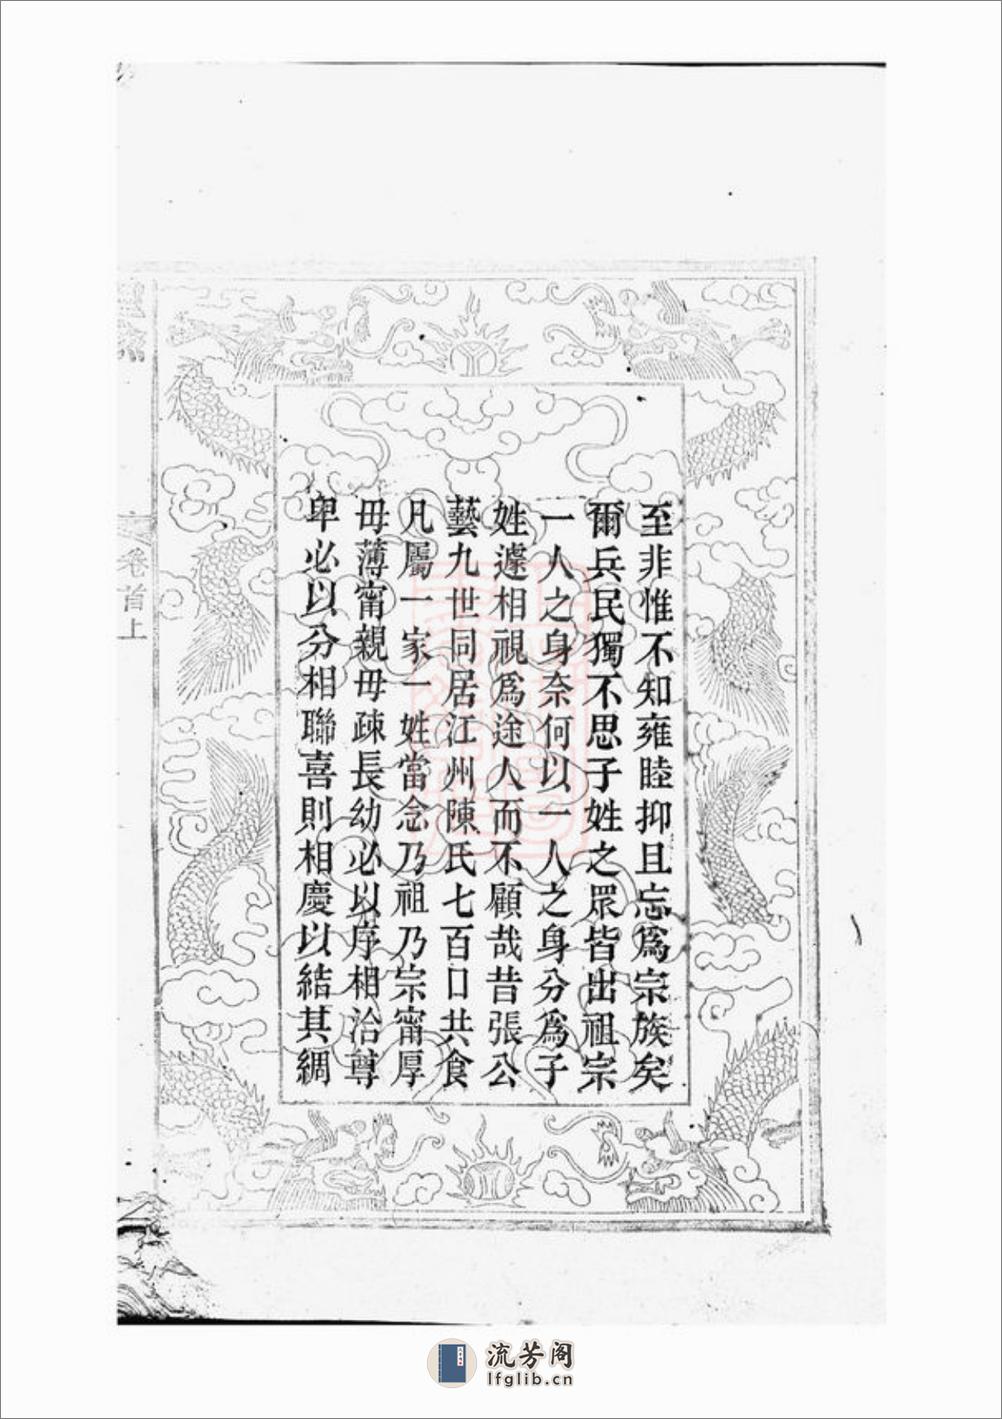 至非惟不知雍睦抑且忘爲宗族矣
爾兵民獨不思子姓之眾皆出祖宗
一人之身奈何以一人之身分爲子
姓遽相視爲途人而不顧哉昔張公
藝九世同居江州陳氏七百口共食
凡屬一家一姓當念乃祖乃宗甯厚
毋薄甯親毋疎長幼必以序相洽尊
卑必以分相聯喜則相慶以結其綢
卷首上
流芳阁
lfglib.cn